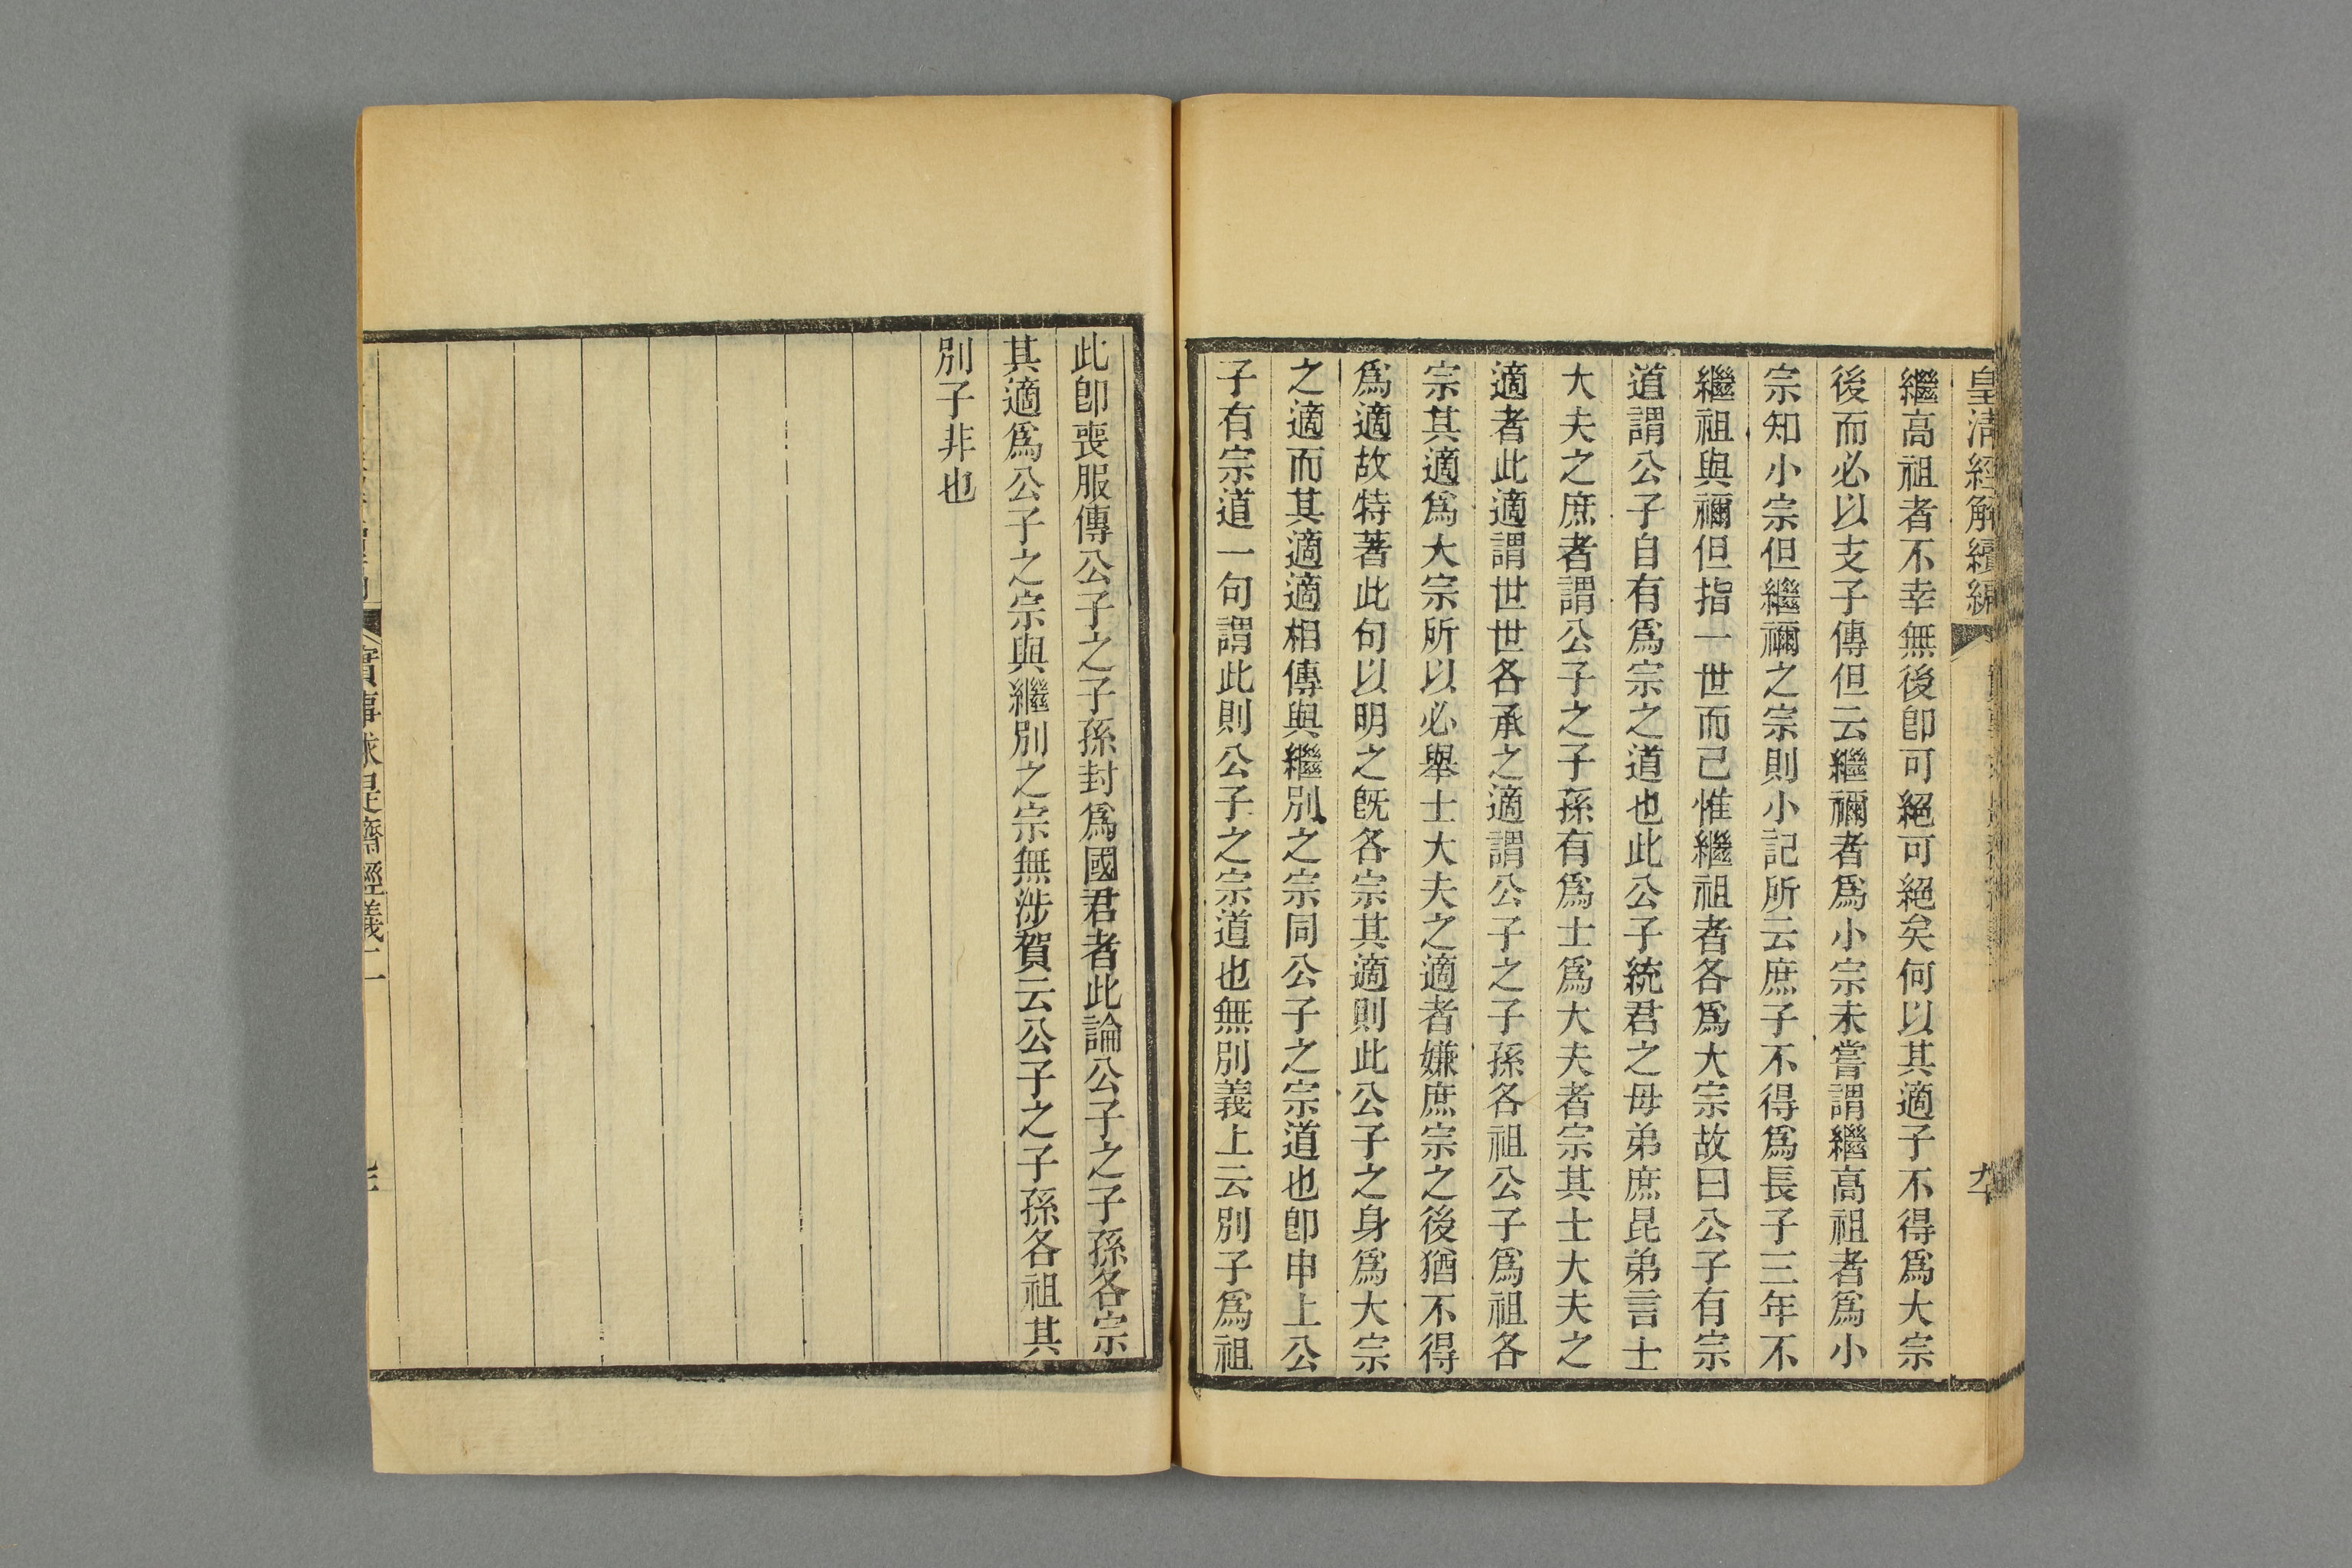 皇清經解續編
繼高祖者不幸無後卽可絕可絕矣何以其適子不得爲大宗
後而必以支子傳但云繼禰者爲小宗未嘗謂繼高祖者爲小
宗知小宗但繼禰之宗則小記所云庶子不得爲長子三年不
繼祖與禰但指一世而己惟繼祖者各爲大宗故曰公子有宗
道謂公子自有爲宗之道也此公子統君之母弟庶昆弟言士
大夫之庶者謂公子之子孫有爲士爲大夫者宗其士大夫之
適者此適謂世世各承之適謂公子之子孫各祖公子爲祖各
宗其適爲大宗所以必舉士大夫之適者嫌庶宗之後猶不得
爲適故特著此句以明之旣各宗其適則此公子之身爲大宗
之適而其適適相傳與繼別之宗同公子之宗道也卽申上公
子有宗道一句謂此則公子之宗道也無別義上云別子爲祖
此卽喪服傳公子之子孫封爲國君者此論公子之子孫各宗
其適爲公子之宗與繼別之宗無涉賀云公子之子孫各祖其
別子非也
實事求是齋經義二